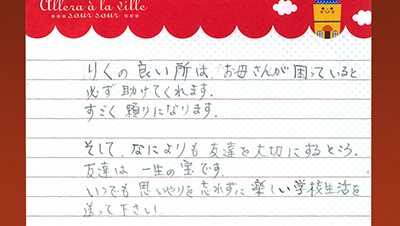 Allera à la ville
sour sour
りくの良い所は、お母さんが困っていると
必ず助けてくれます。
すごく頼りになります。
そして、なによりも友達を大切にするところ。
友達は一生の宝です。
いつでも思いやりを忘れずに楽しい学校生活を
送って下さい